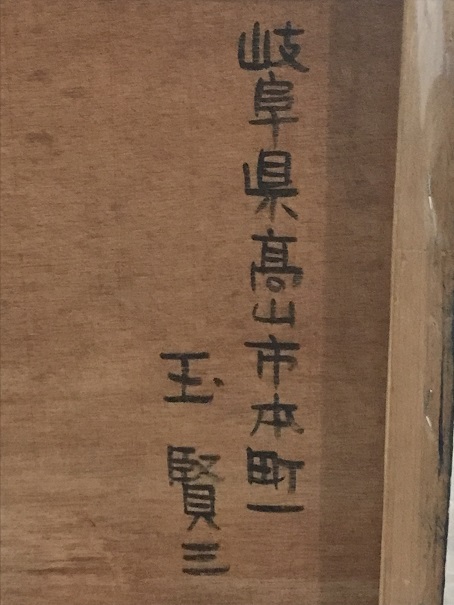 岐阜県高山市本町一
玉賢三